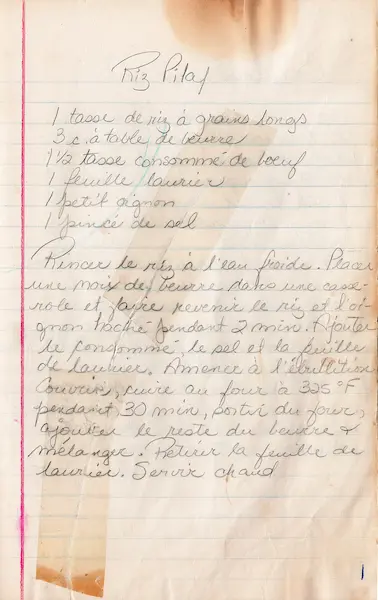 Riz Pilaf
1 tasse de riz à grains longs
3 c. à table de beurre
1 1/2 tasse consommé de boeuf
1 feuille laurier
1 petit oignon
1 pincé de sel
Rincer le riz à l'eau froide. Placer
une noix de beurre dans une casse-
role et faire revenir le riz et l'oi-
gnon haché pendant 2 min. Ajouter
le consommé, le sel et la feuille
de laurier. Amener à l'ébullition
Couvrir, cuire au four à 325 °F
pendant 30 min, sortir du four,
ajouter le reste du beurre &
mélanger. Retirer la feuille de
laurier. Servir chaud